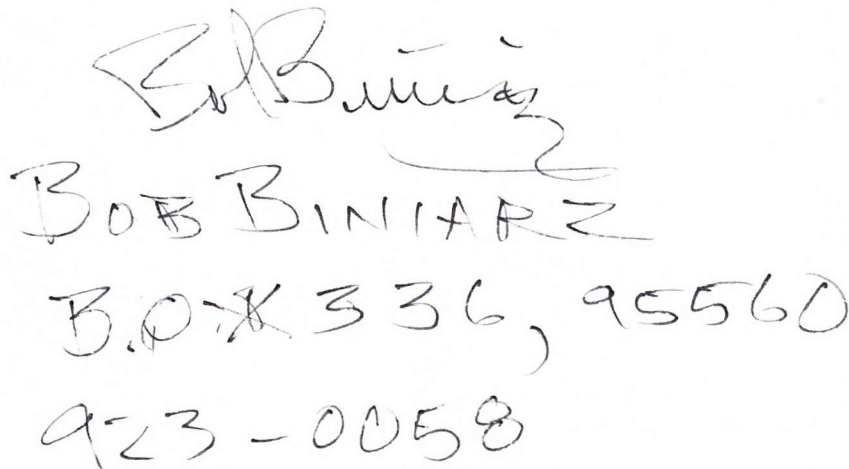 Bob Biniarz
BOB BINIARZ
BOX 336, 95560
923-0058